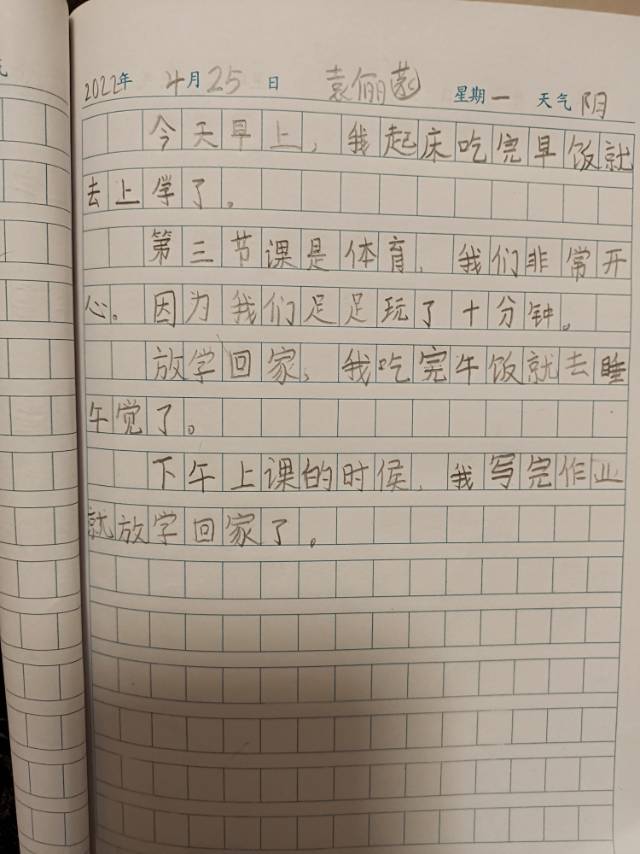 2022年 4月25日 袁俪菡 星期一 天气 阴
今天早上，我起床吃完早饭就
去上学了。
第三节课是体育，我们非常开
心。因为我们足足玩了十分钟。
放学回家，我吃完午饭就去睡
午觉了。
下午上课的时侯，我写完作业
就放学回家了。